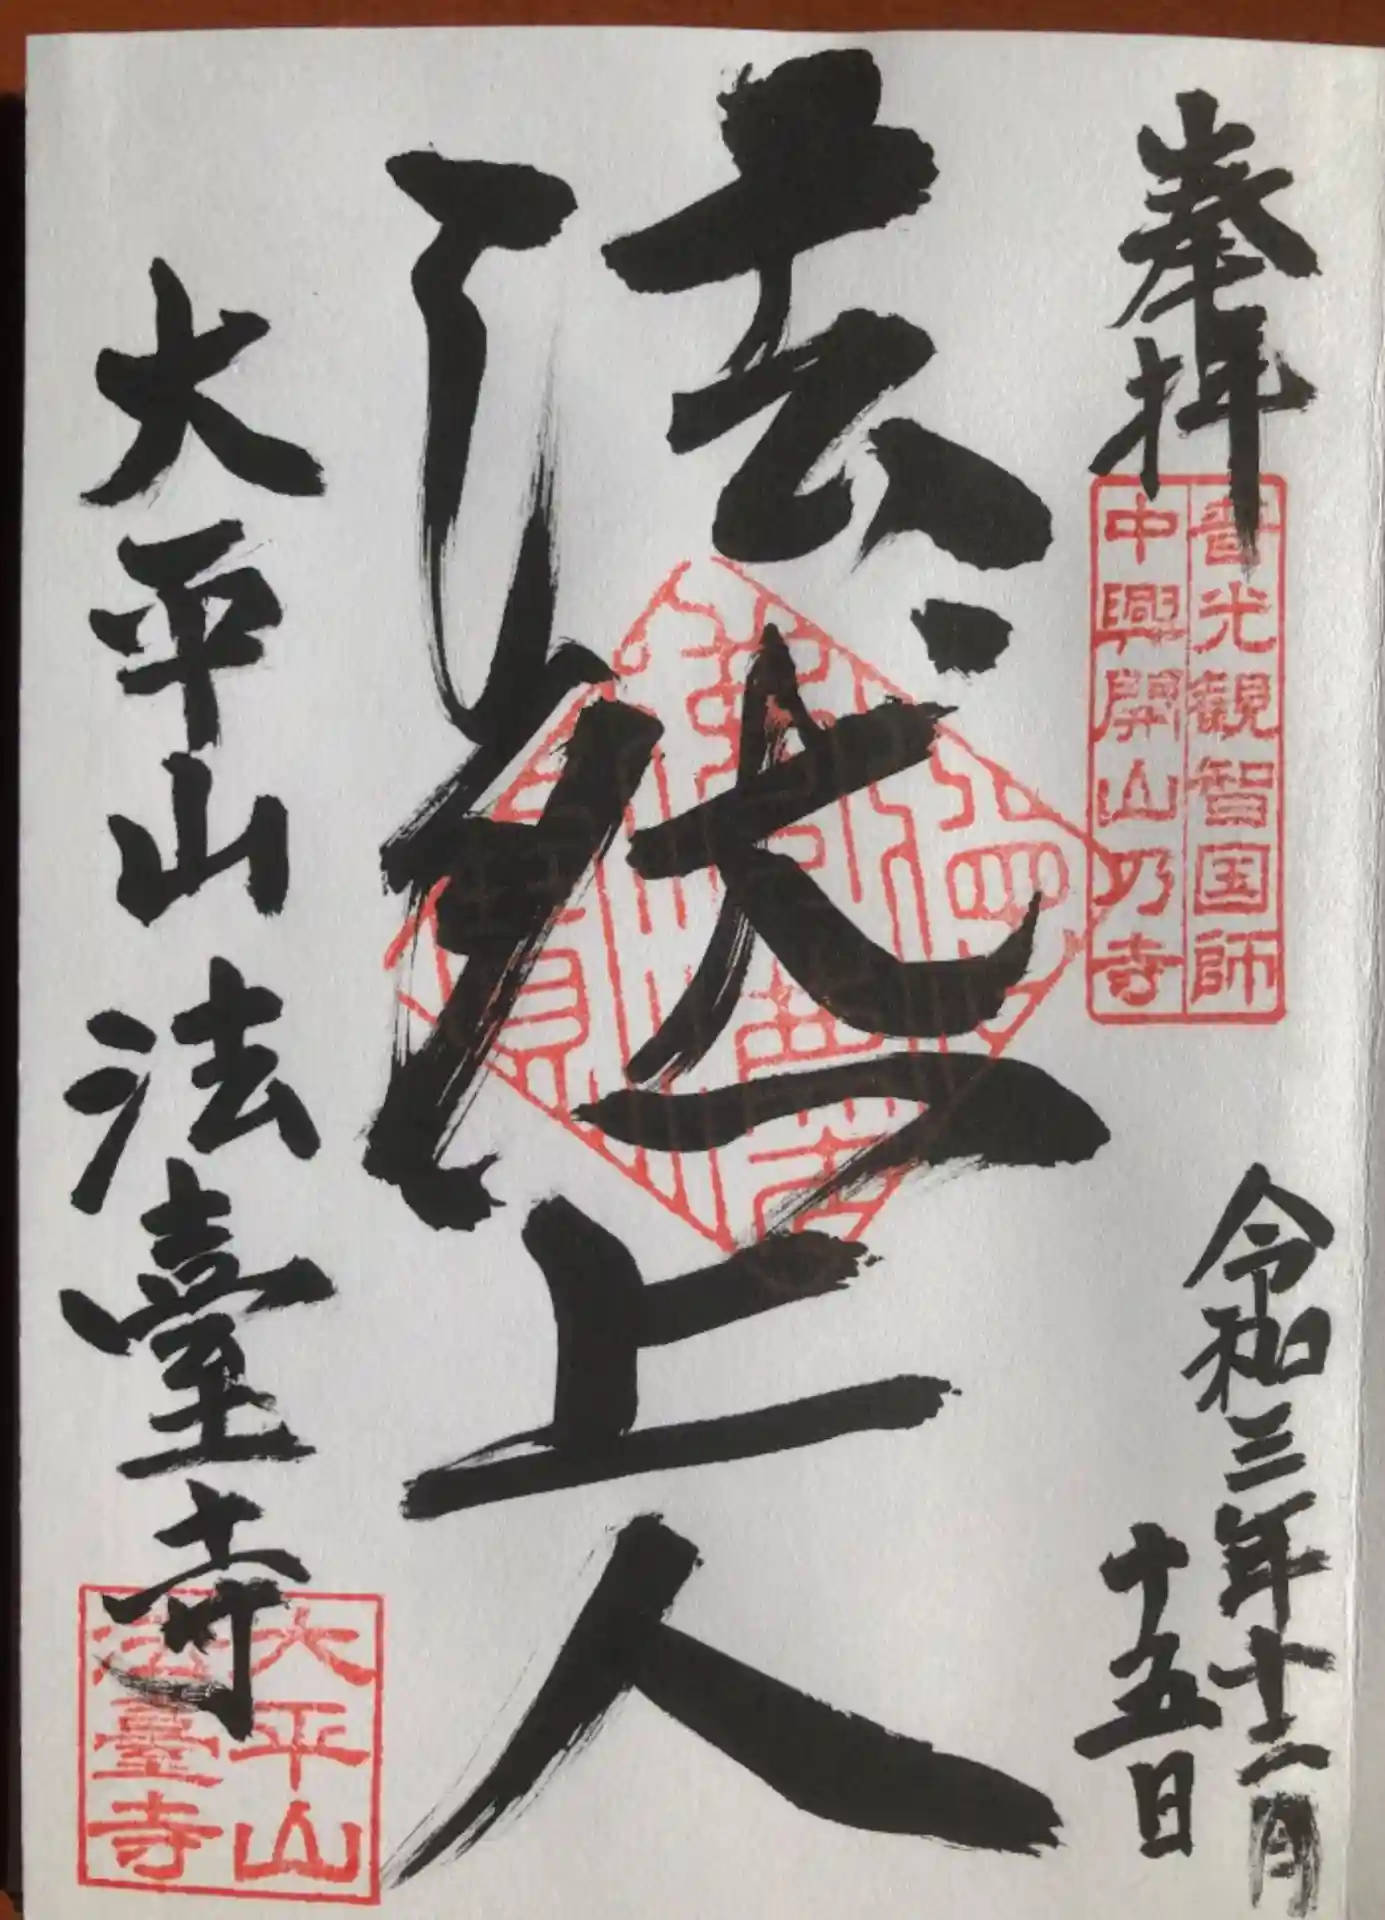 奉拝
普光観智国師
中興開山乃寺
令和三年十二月
十五日
法然上人
大平山法臺寺
大平山
法臺寺